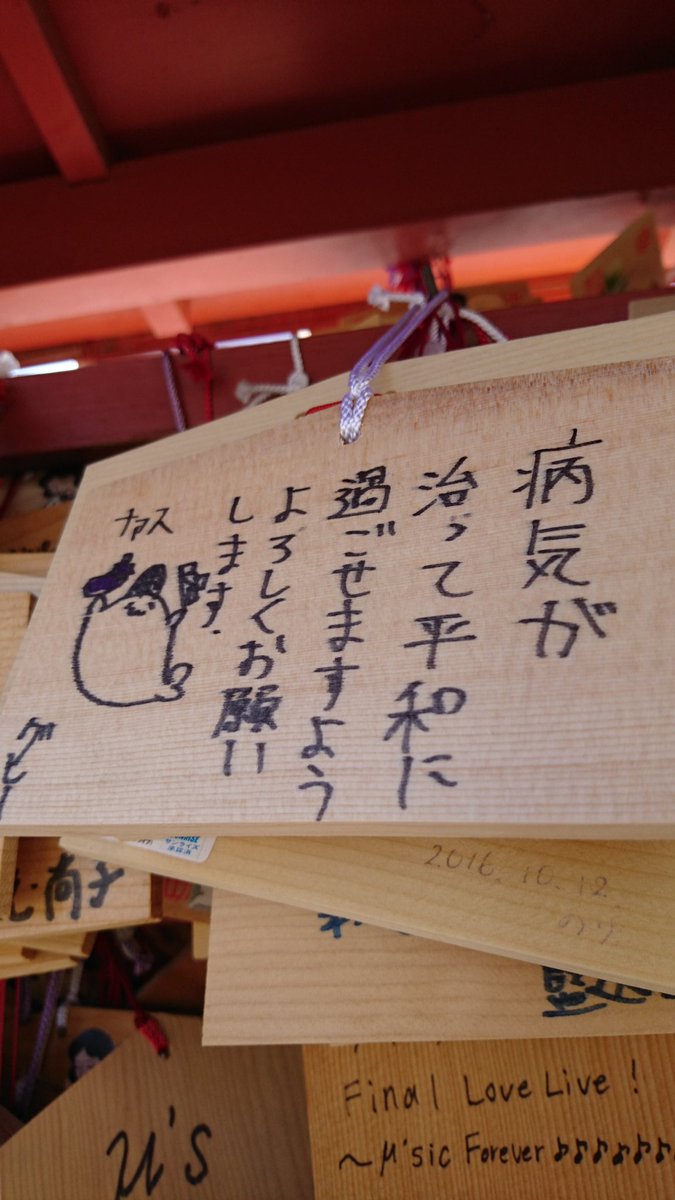 病気が
治って平和に
過ごせますよう
よろしくお願い
します.
ナァス
サンライズ
2016.10.12
μ's
Final Love Live!
～μ'sic Forever♪♪♪♪♪♪